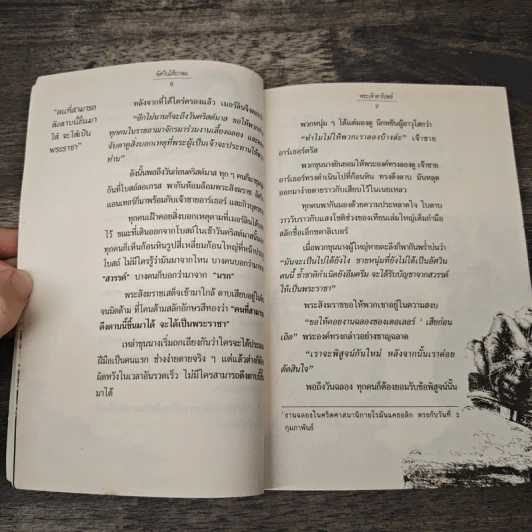 อัศวินโต๊ะกลม
8
"คนที่สามารถ
ดึงดาบนี้ขึ้นมา
ได้ จะได้เป็น
พระราชา"
หลังจากที่ได้ไตร่ตรองแล้ว เมอร์ลินจึง
"อีกไม่นานก็จะถึงวันคริสต์มาส ขอให้
ทุกคนในราชอาณาจักรมาร่วมงานเลี้ยงฉลอง และ
จับตาดูสิ่งบอกเหตุที่พระผู้เป็นเจ้าจะประทานให้
ท่าน"
ดังนั้นพอถึงวันก่อนคริสต์มาส ทุก ๆ คนก็มา
กันที่โบสถ์ลอเกรส พากันห้อมล้อมพระสังฆราช
แอนเทอร์ก็มาพร้อมกับเจ้าชายอาร์เธอร์ และก้าว
ทุกคนเฝ้าคอยสิ่งบอกเหตุตามที่เมอร์ลินได้
ไว้ ขณะที่เดินออกจากโบสถ์ในเช้าวันคริสต์มาสนั้น
ทุกคนก็เห็นก้อนหินรูปสี่เหลี่ยมก้อนใหญ่ที่หน้า
โบสถ์ ไม่มีใครรู้ว่ามันมาจากไหน บางคนบอกว่ามาจาก
"สวรรค์" บางคนก็บอกว่ามาจาก "นรก"
พระสังฆราชเสด็จเข้ามาใกล้ ดาบเสียบอยู่ใน
จนมิดด้าม ที่โคนด้ามสลักอักษรสีทองว่า "คนที่สามารถ
ดึงดาบนี้ขึ้นมาได้ จะได้เป็นพระราชา"
เหล่าขุนนางเริ่มถกเถียงกันว่าใครจะได้
ฝีมือเป็นคนแรก ช่างง่ายดายจริง ๆ แต่แล้วต่างก็
ผิดหวังในเวลาอันรวดเร็ว ไม่มีใครสามารถดึงดาบนี้ขึ้น
มาได้
พระเจ้าอาร์เธอร์
9
พวกหนุ่ม ๆ ได้แต่มองดู นึกหยันผู้อาวุโสกว่า
"ทำไมไม่ให้พวกเราลองบ้างล่ะ" เจ้าชาย
อาร์เธอร์ตรัส
พวกขุนนางยินยอมให้พระองค์ทรงลองดู เจ้าชาย
อาร์เธอร์ทรงดำเนินไปที่ก้อนหิน ทรงดึงดาบ มันหลุด
ออกมาง่ายดายราวกับเสียบไว้ในเนยเหลว
ทุกคนพากันมองด้วยความประหลาดใจ ใบดาบ
วาววับราวกับแสงโชติช่วงของเทียนเล่มใหญ่เต็มกำมือ
สลักชื่อเอ็กซคาลิเบอร์
เมื่อพวกขุนนางผู้ใหญ่หายตะลึงก็พากันพร่ำบ่นว่า
"มันจะเป็นไปได้ยังไง ชายหนุ่มที่ยังไม่ได้เป็นอัศวิน
คนนี้ ซ้ำชาติกำเนิดยังอึมครึม จะได้รับบัญชาจากสวรรค์
ให้เป็นพระราชา"
พระสังฆราชขอให้พวกเขาอยู่ในความสงบ
"ขอให้คอยงานฉลองของเดอเลอร์ ¹ เสียก่อน
เถิด" พระองค์ทรงกล่าวอย่างชาญฉลาด
"เราจะพิสูจน์กันใหม่ หลังจากนั้นเราค่อย
ตัดสินใจ"
พอถึงวันฉลอง ทุกคนก็ต้องยอมรับข้อพิสูจน์นั้น
¹งานฉลองในคริสต์ศาสนานิกายโรมันแคธอลิก ตรงกับวันที่ 2
กุมภาพันธ์